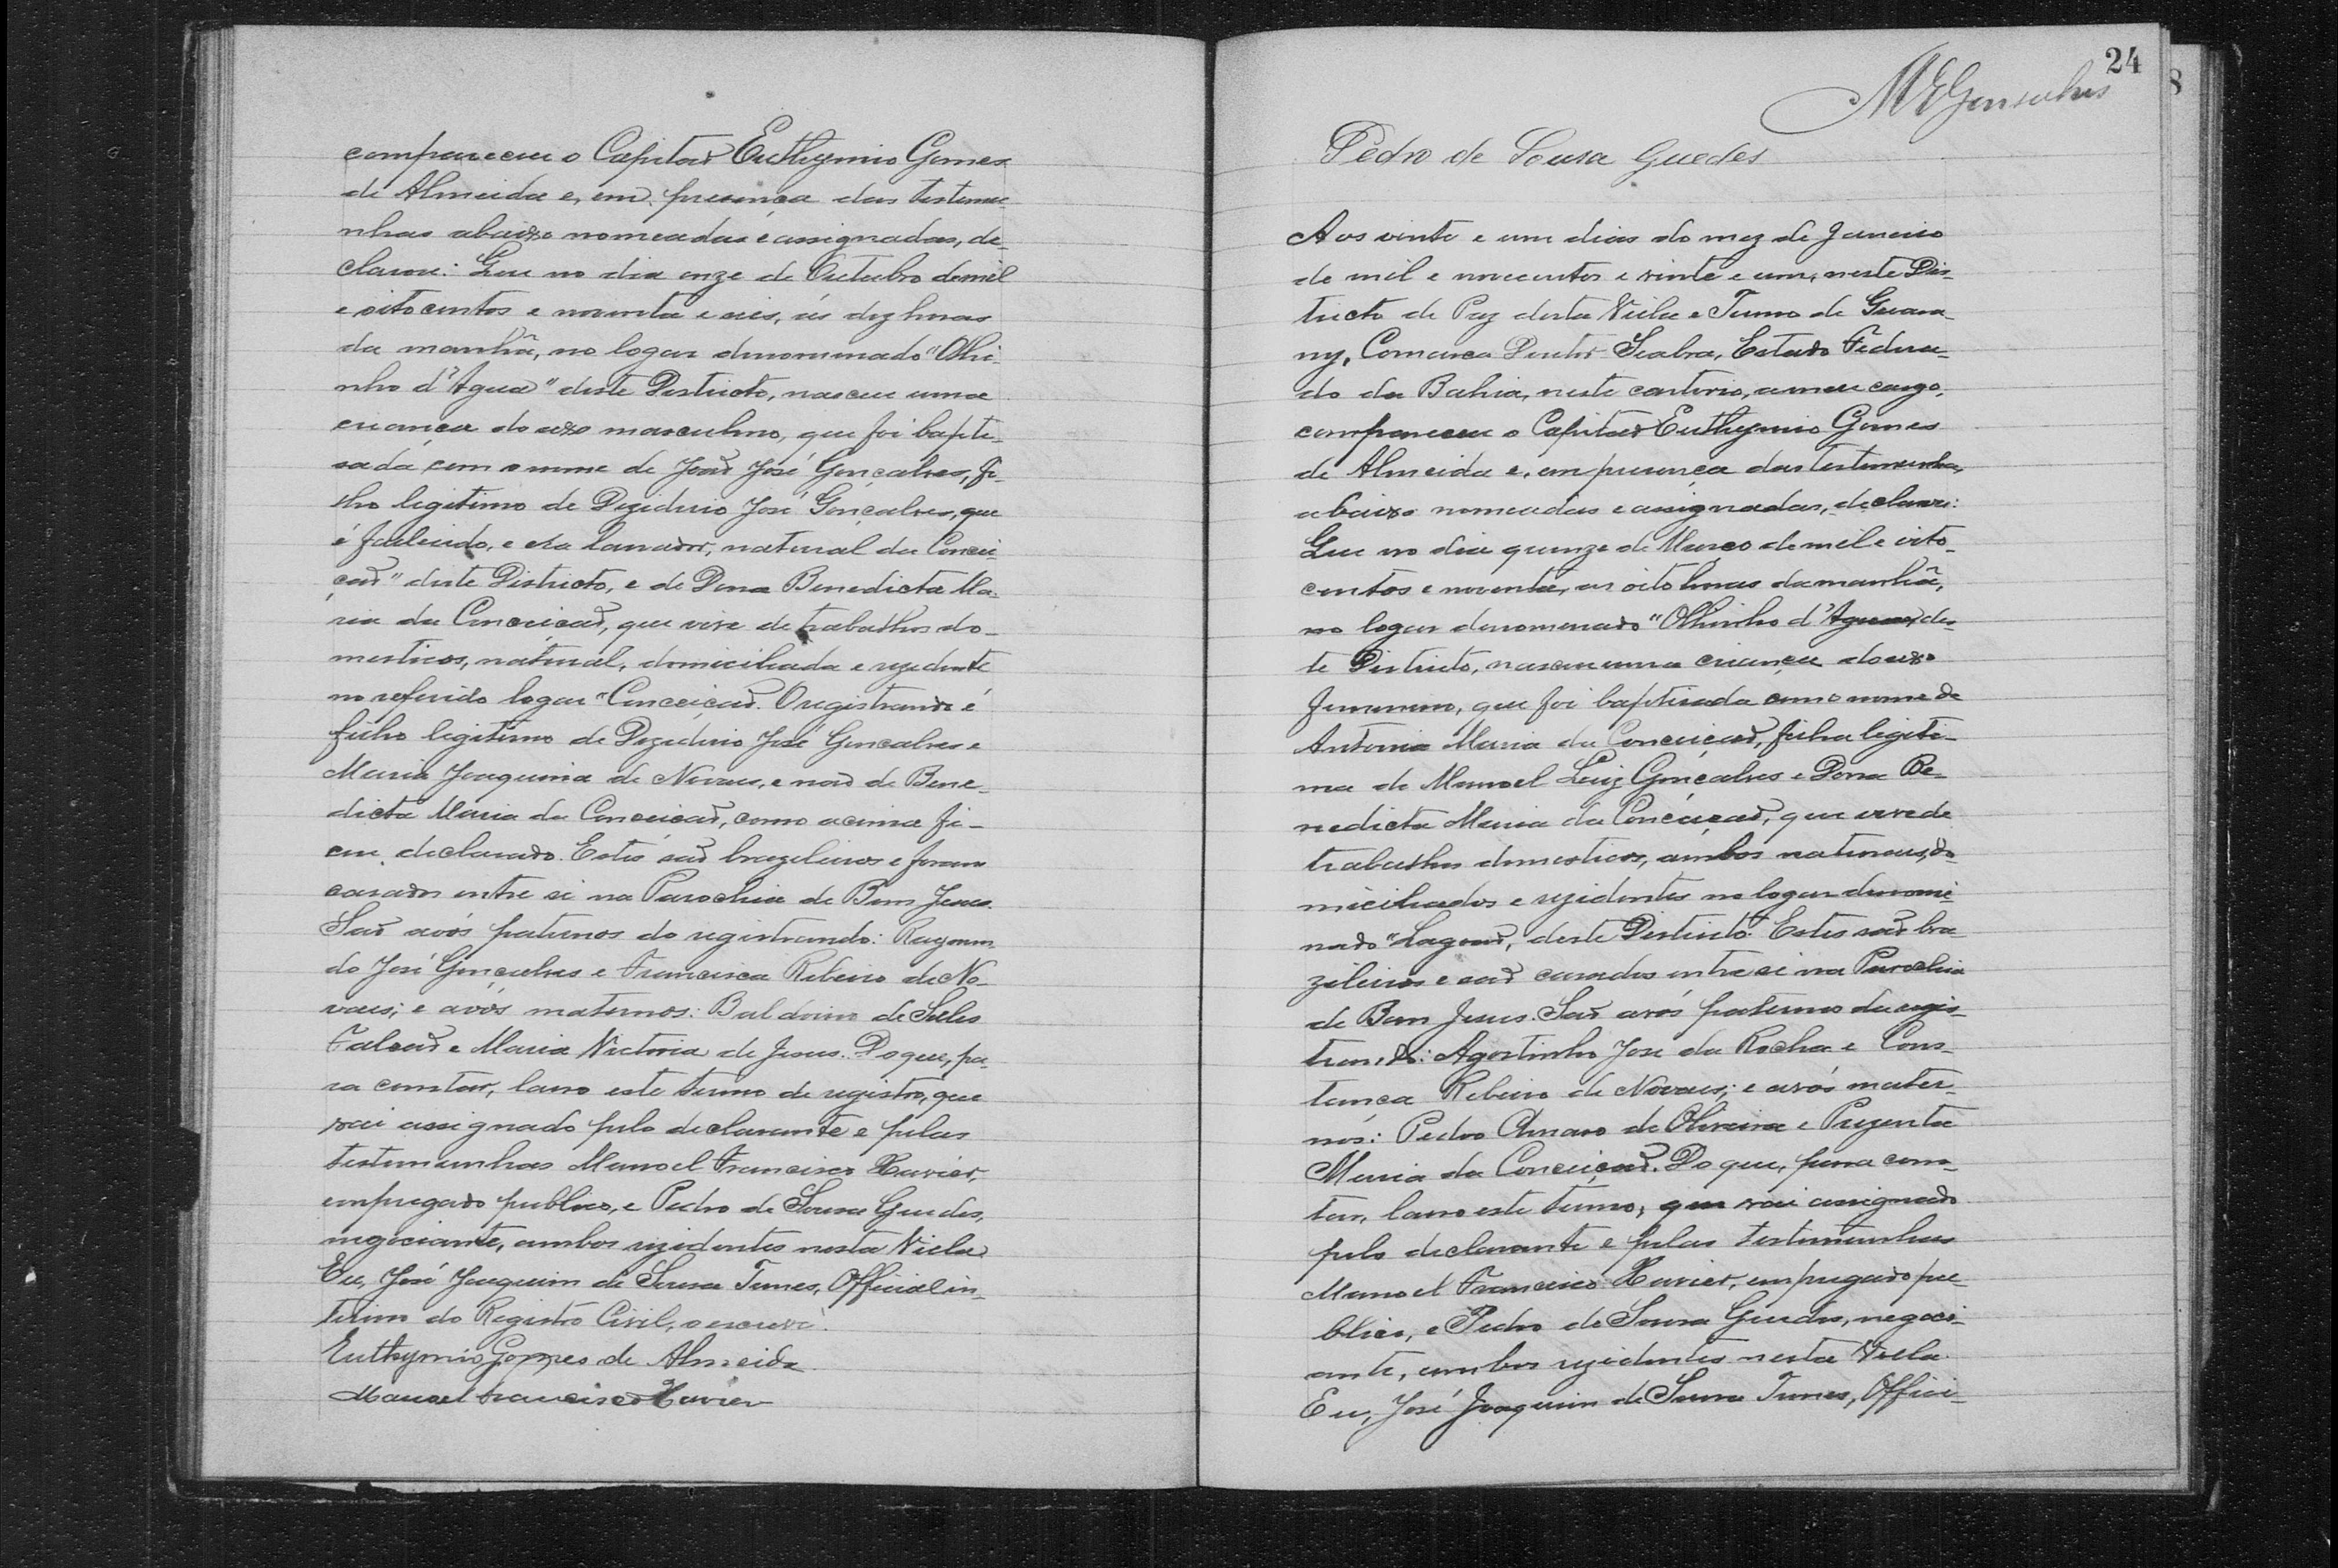 compareceu o Capitão Euthymio Gomes
de Almeida e, em presença das testemu-
nhas abaixo nomeadas e assignadas, de-
clarou: Que no dia onze de Outubro de mil
e oitocentos e noventa e seis, ás dez horas
da manhã, no logar denominado "Olhi-
nho d'Agua" deste Districto, nasceu uma
criança do sexo masculino, que foi bapti-
sada com o nome de João José Gonçalves, fi-
lho legitimo de Deziderio José Gonçalves, que
é fallecido, e era lavrador, natural da Concei
ção" deste Districto, e de Dona Benedicta Ma-
ria da Conceição, que vive de trabalhos do-
mesticos, natural, domiciliada e rezidente
no referido logar "Conceição. O registrando é
filho legitimo de Deziderio José Gonçalves e
Maria Joaquina de Novaes, e não de Bene-
dicta Maria da Conceição, como acima fi-
cou declarado. Estes são brazileiros e foram
casados entre si na Parochia de Bom Jesus.
São avós paternos do registrando: Raymun-
do José Gonçalves e Francisca Ribeiro de No-
vaes; e avós maternos: Baldoino de Salles
Falcão e Maria Victoria de Jesus. Do que, pa-
ra constar, lavro este termo de registro, que
vai assignado pelo declarante e pelas
testemunhas Manoel Francisco Xavier,
empregado publico, e Pedro de Sousa Guedes,
negociante, ambos rezidentes nesta Villa
Eu, José Joaquim de Sousa Tunes, Official in-
terino do Registro Civil, o escrevi.
Euthymio Gomes de Almeida
Manoel Francisco Xavier
24
MEGonsalves
Pedro de Sousa Guedes
Aos vinte e um dias do mez de Janeiro
de mil e novecentos e vinte e um, neste Dis-
tricto de Paz desta Villa e Termo de Guara-
ny, Comarca Doutor Seabra, Estado Federa-
do da Bahia, neste cartorio, a meu cargo,
compareceu o Capitão Euthymio Gomes
de Almeida e, em presença das testemunhas,
abaixo nomeadas e assignadas, declarou:
Que no dia quinze de Março de mil e oito-
centos e noventa, as oito horas da manhã,
no logar denomenado "Olhinho d'Agua, des-
te Districto, nasceu uma criança do sexo
femenino, que foi baptisada com o nome de
Antonia Maria da Conceição, filha legiti-
ma de Manoel Luiz Gonçalves e Dona Be-
nedicta Maria da Conceição, que vive de
trabalhos domesticos, ambos naturaes, do-
miciliados e rezidentes no logar denomi-
nado "Lagoão, deste Districto. Estes são bra
zileiros e são casados entre si na Parochia
de Bom Jesus. São avós paterno da regis-
trando: Agostinho José da Rocha e Cons-
tança Ribeiro de Novaes; e avós mater-
nos: Pedro Amaro de Oliveira e Prezenta
Maria da Conceição. Do que, para cons-
tar, lavro este termo, que vai assignado
pelo declarante e pelas testemunhas
Manoel Francisco Xavier, empregado pu-
blico, e Pedro de Sousa Guedes, negoci-
ante, ambos rezidentes nesta Villa.
Eu, José Joaquim de Sousa Tunes, Offici-